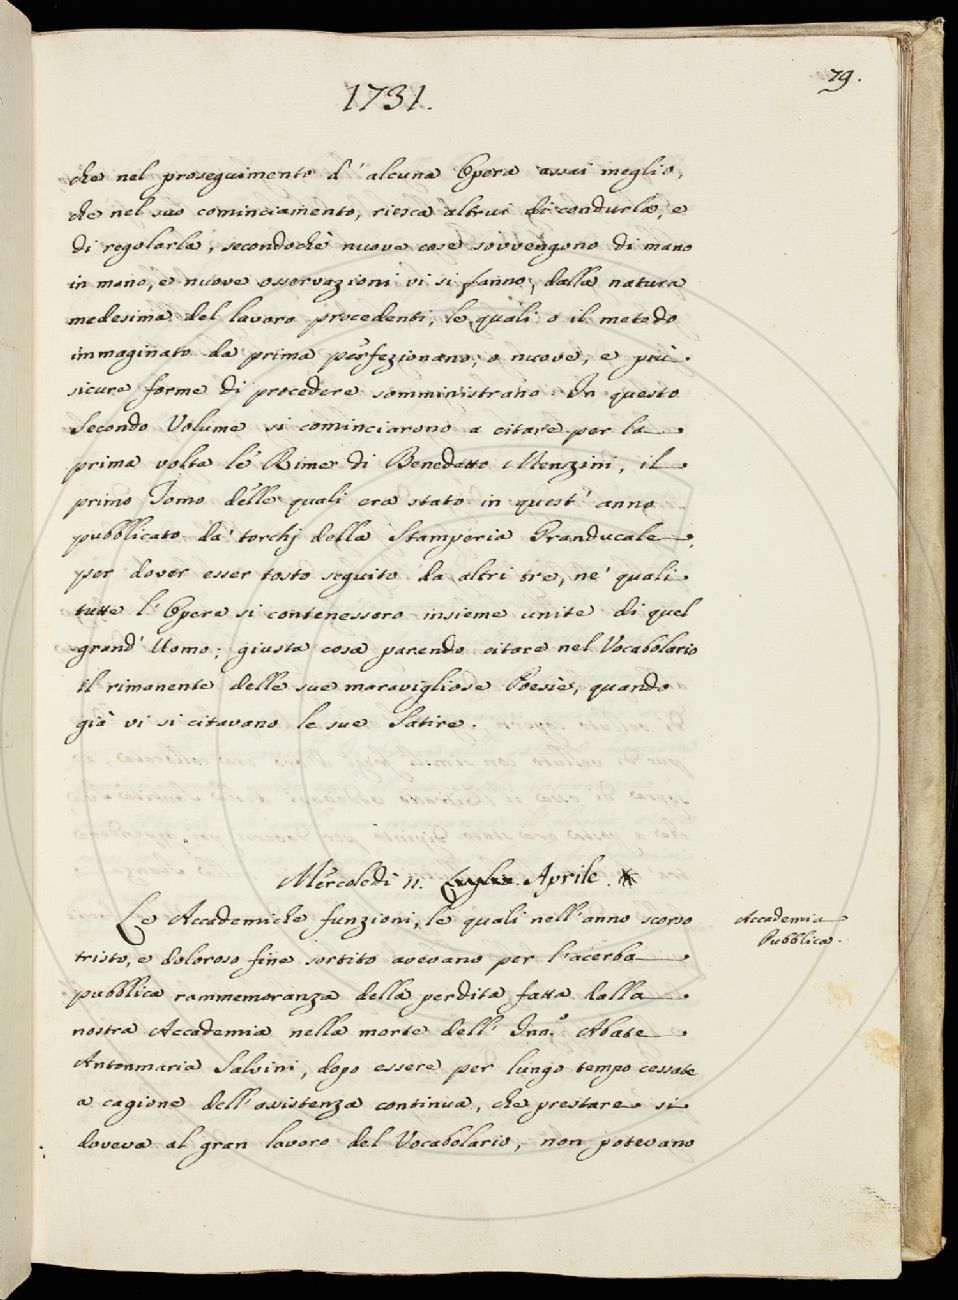 79.
1731.
che nel proseguimento d'alcuna Opera assai meglio,
che nel suo cominciamento, riesca altrui di condurla, e
di regolarla, secondochè nuove cose sovvengono di mano
in mano, e nuove osservazioni vi si fanno, dalla natura
medesima del lavoro procedenti, le quali o il metodo
immaginato da prima perfezionano, o nuove, e più
sicure forme di procedere somministrano. In questo
Secondo Volume si cominciarono a citare per la
prima volta le Rime di Benedetto Menzini, il
primo Tomo delle quali era stato in quest'anno
pubblicato da' torchj della Stamperia Granducale,
per dover esser tosto seguito da altri tre, ne' quali
tutte l'Opere si contenessero insieme unite di quel
grand'Uomo; giusta cosa parendo citare nel Vocabolario
il rimanente delle sue maravigliose Poesie, quando
già vi si citavano le sue Satire.
Mercoledì 11. Luglio Aprile.
Le Accademiche funzioni, le quali nell'anno scorso
tristo, e doloroso fine sortito avevano per l'acerba
pubblica rammemoranza della perdita fatta dalla
nostra Accademia nella morte dell' Inn.º Abate
Antonmaria Salvini, dopo essere per lungo tempo cessate
a cagione dell'assistenza continua, che prestare si
doveva al gran lavoro del Vocabolario, non potevano
Accademia
Pubblica.